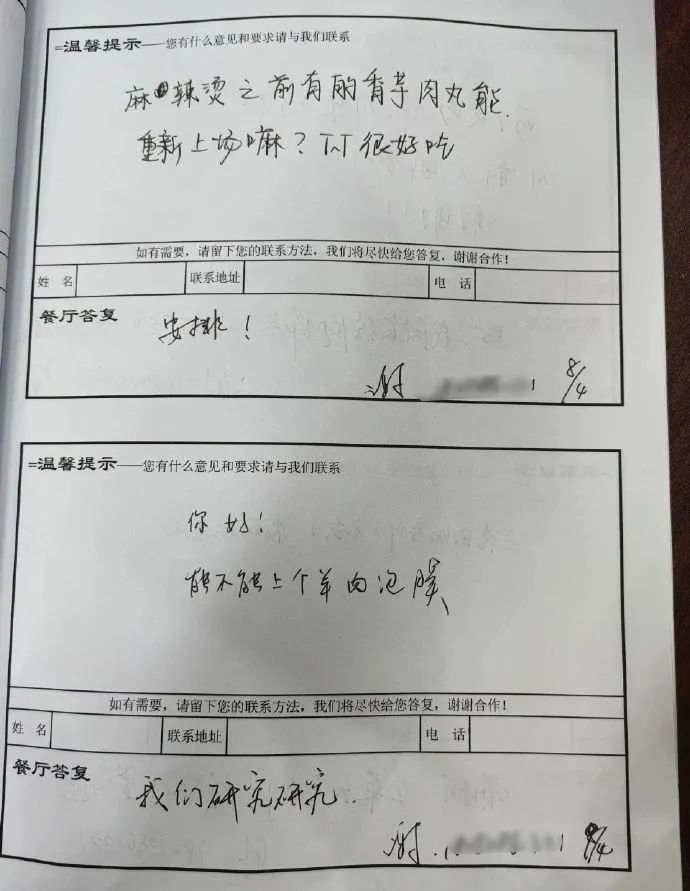 =温馨提示——您有什么意见和要求请与我们联系
麻辣烫之前有的香芋肉丸能
重新上场嘛？T^T很好吃
如有需要，请留下您的联系方法，我们将尽快给您答复，谢谢合作！
姓 名 联系地址 电 话
餐厅答复
安排！
谢 8/4
=温馨提示——您有什么意见和要求请与我们联系
你好！
能不能上个羊肉泡膜
如有需要，请留下您的联系方法，我们将尽快给您答复，谢谢合作！
姓 名 联系地址 电 话
餐厅答复
我们研究研究.
8/4